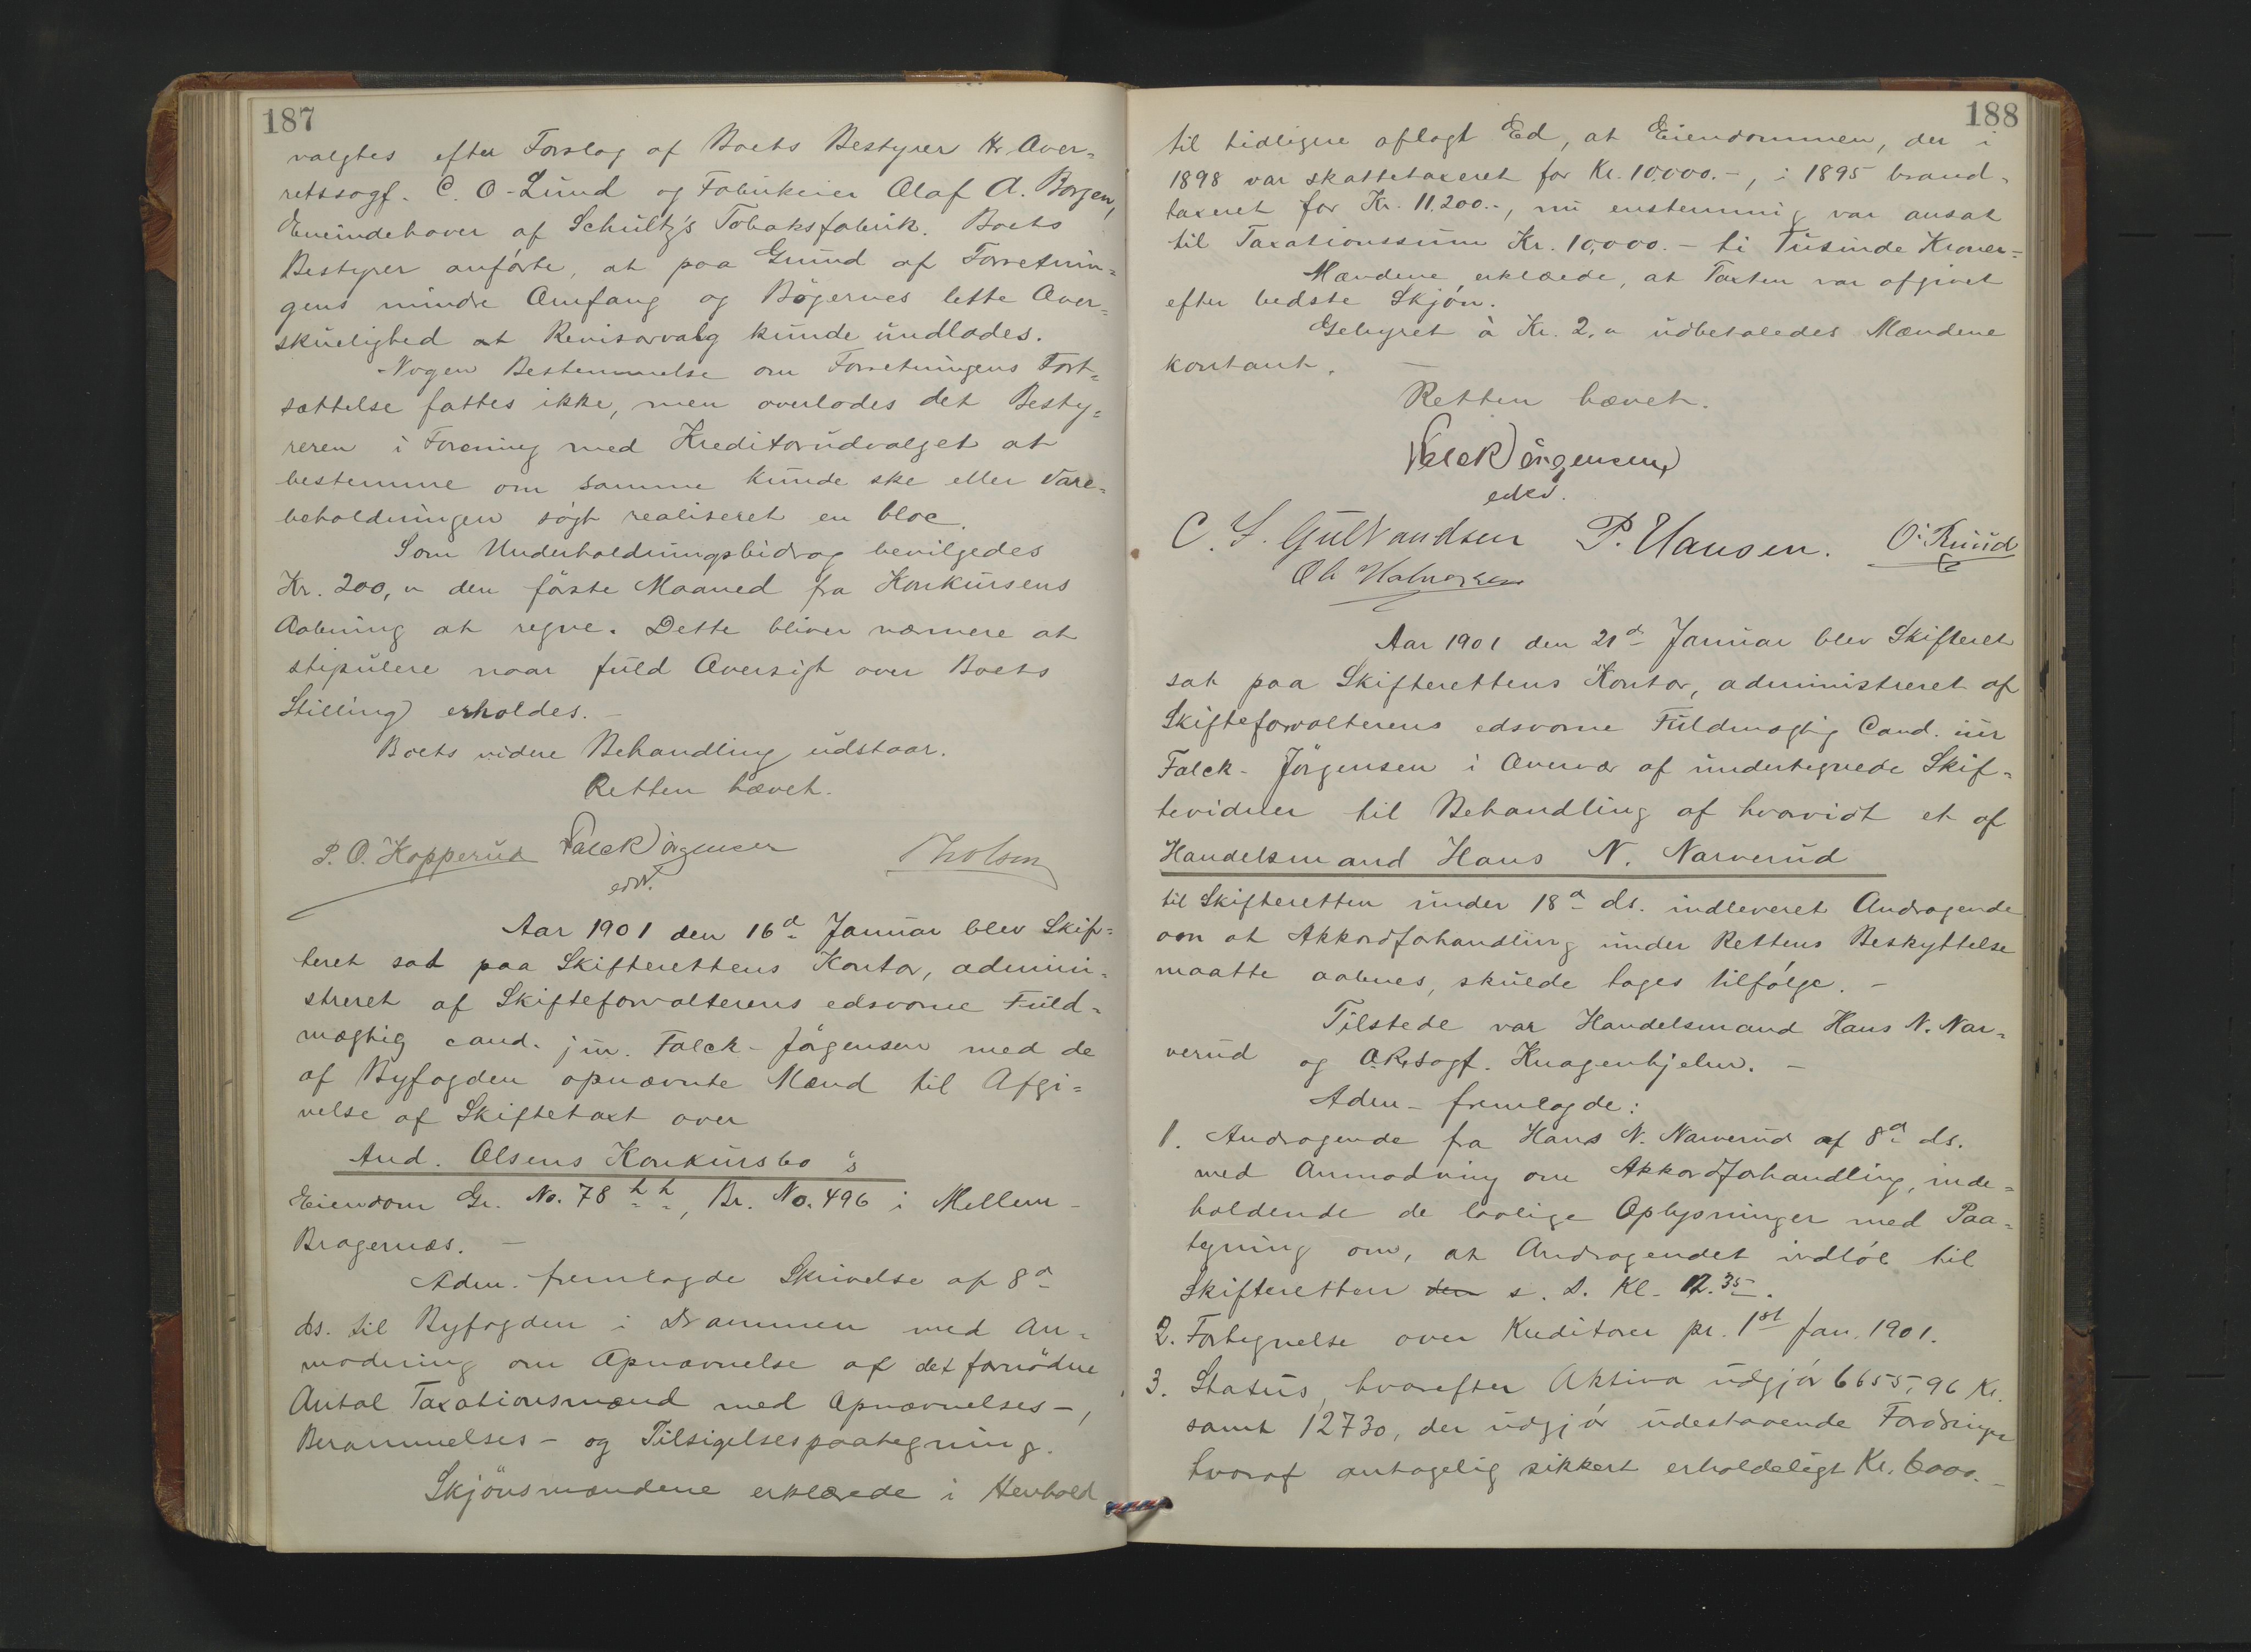 187
valgtes efter Forslag af Boets Bestyrer Hr Over=
retssagf. C. O. Lund og Fabrikeier Olaf A. Borgen,
Eneindehaver af Schultz's Tobaksfabrik. Boets
Bestyrer anførte, at paa Grund af Forretnin=
gens mindre Omfang og Bøgernes lette Over=
skuelighed at Revisorvalg kunde undlades.
Nogen Bestemmelse om Forretningens Fort=
sættelse fattes ikke, men overlodes det Besty=
reren i Forening med Kreditorudvalget at
bestemme om samme kunde ske eller Vare=
beholdningen søgt realiseret en bloc.
Som Underholdningsbidrag bevilgedes
Kr. 200, " den første Maaned fra Konkursens
Aabning at regne. Dette bliver nærmere at
stipulere naar fuld Oversigt over Boets
Stilling erholdes. –
Boets videre Behandling udstaar.
Retten hævet.
P. O. Kopperud Falck Jørgensen
edsv.
Aar 1901 den 16d Januar blev Skif=
teret sat paa Skifterettens Kontor, admini=
streret af Skifteforvalterens edsvorne Fuld=
mægtig cand. jur. Falck-Jørgensen med de
af Byfogden opnævnte Mænd til Afgi=
velse af Skiftetaxt over
And. Olsens Konkursbo's
Eiendom Gr. No. 78 h h, Br. No. 496 i Mellem-
Bragernæs. –
Adm. fremlagde Skrivelse af 8d
ds. til Byfogden i Drammen med An=
modning om Opnævnelse af det fornødne
Antal Taxationsmænd med Opnævnelses-,
Berammelses- og Tilsigelsespaategning.
Skjønsmændene erklærede i Henhold
188
til tidligere aflagt Ed, at Eiendommen, der i
1898 var skattetaxeret for Kr. 10,000.-, i 1895 brand=
taxeret for Kr. 11,200.-, nu enstemmig var ansat
til Taxationssum Kr. 10,000. - ti Tusinde Kroner=
Mændene erklærede, at Taxten var afgivet
efter bedste Skjøn.
Gebyret à Kr. 2, " udbetaledes Mændene
kontant. –
Retten hævet.
Falck Jørgensen
edsv.
C. F. Gulbrandsen P. Hansen. O. Ruud
Aar 1901 den 21d Januar blev Skifteret
sat paa Skifterettens Kontor, administreret af
Skifteforvalterens edsvorne Fuldmægtig Cand. jur
Falck-Jørgensen i Overvær af undertegnede Skif=
tevidner til Behandling af hvorvidt et af
Handelsmand Hans N. Narverud
til Skifteretten under 18d ds. indleveret Andragende
om at Akkordforhandling under Rettens Beskyttelse
maatte aabnes, skulde tages tilfølge. –
Tilstede var Handelsmand Hans N. Nar=
verud og O.R.sagf. Knagenhjelm. –
Adm- fremlagde:
1. Andragende fra Hans N. Narverud af 8d ds.
med Anmodning om Akkordforhandling, inde=
holdende de lovlige Oplysninger med Paa=
tegning om, at Andragendet indløb til
Skifteretten den s. D. Kl. 12.35.
2. Fortegnelse over Kreditorer pr. 1st Jan. 1901.
3. Status, hvorefter Aktiva udgjør 6655,96 Kr.
samt 12730, der udgjør udestaaende Fordringer
hvoraf antagelig sikkert erholdeligt Kr. 6000. –